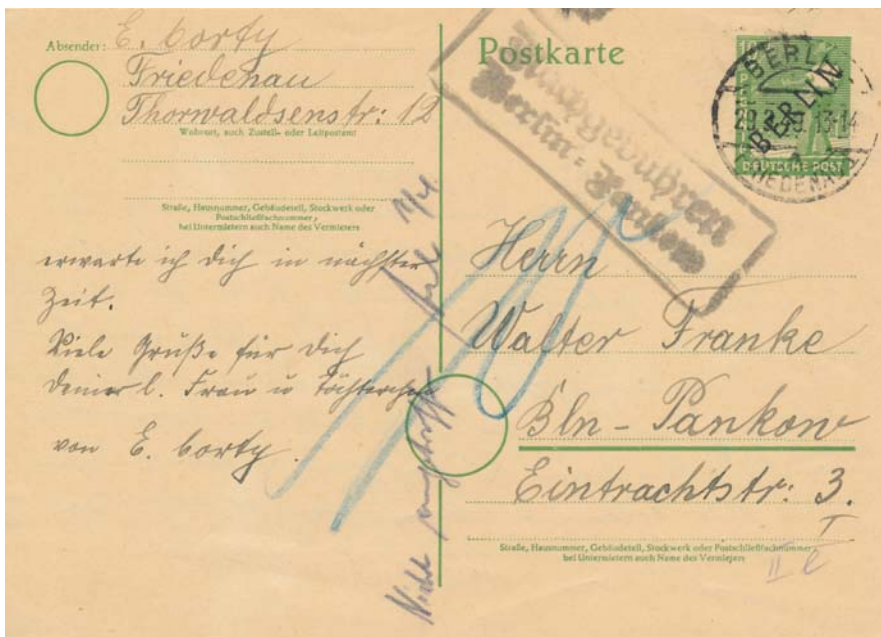 Absender: E. Corty
Friedenau
Thorwaldsenstr: 12
Wohnort, auch Zustell- oder Leitpostamt
Straße, Hausnummer, Gebäudeteil, Stockwerk oder
Postschließfachnummer,
bei Untermietern auch Name des Vermieters
erwarte ich dich in nächster
Zeit.
Viele Grüße für dich
deiner l. Frau u Töchterchen
von E. Corty.
Nicht
Postkarte
Nachgebühren
Berlin-Pankow
10
BERLIN
BERLIN
13-14
FRIEDENAU
DEUTSCHE POST
Herrn
Walter Franke
Bln-Pankow
Eintrachtstr: 3.
I
Straße, Hausnummer, Gebäudeteil, Stockwerk oder Postschließfachnummer,
bei Untermietern auch Name des Vermieters
II